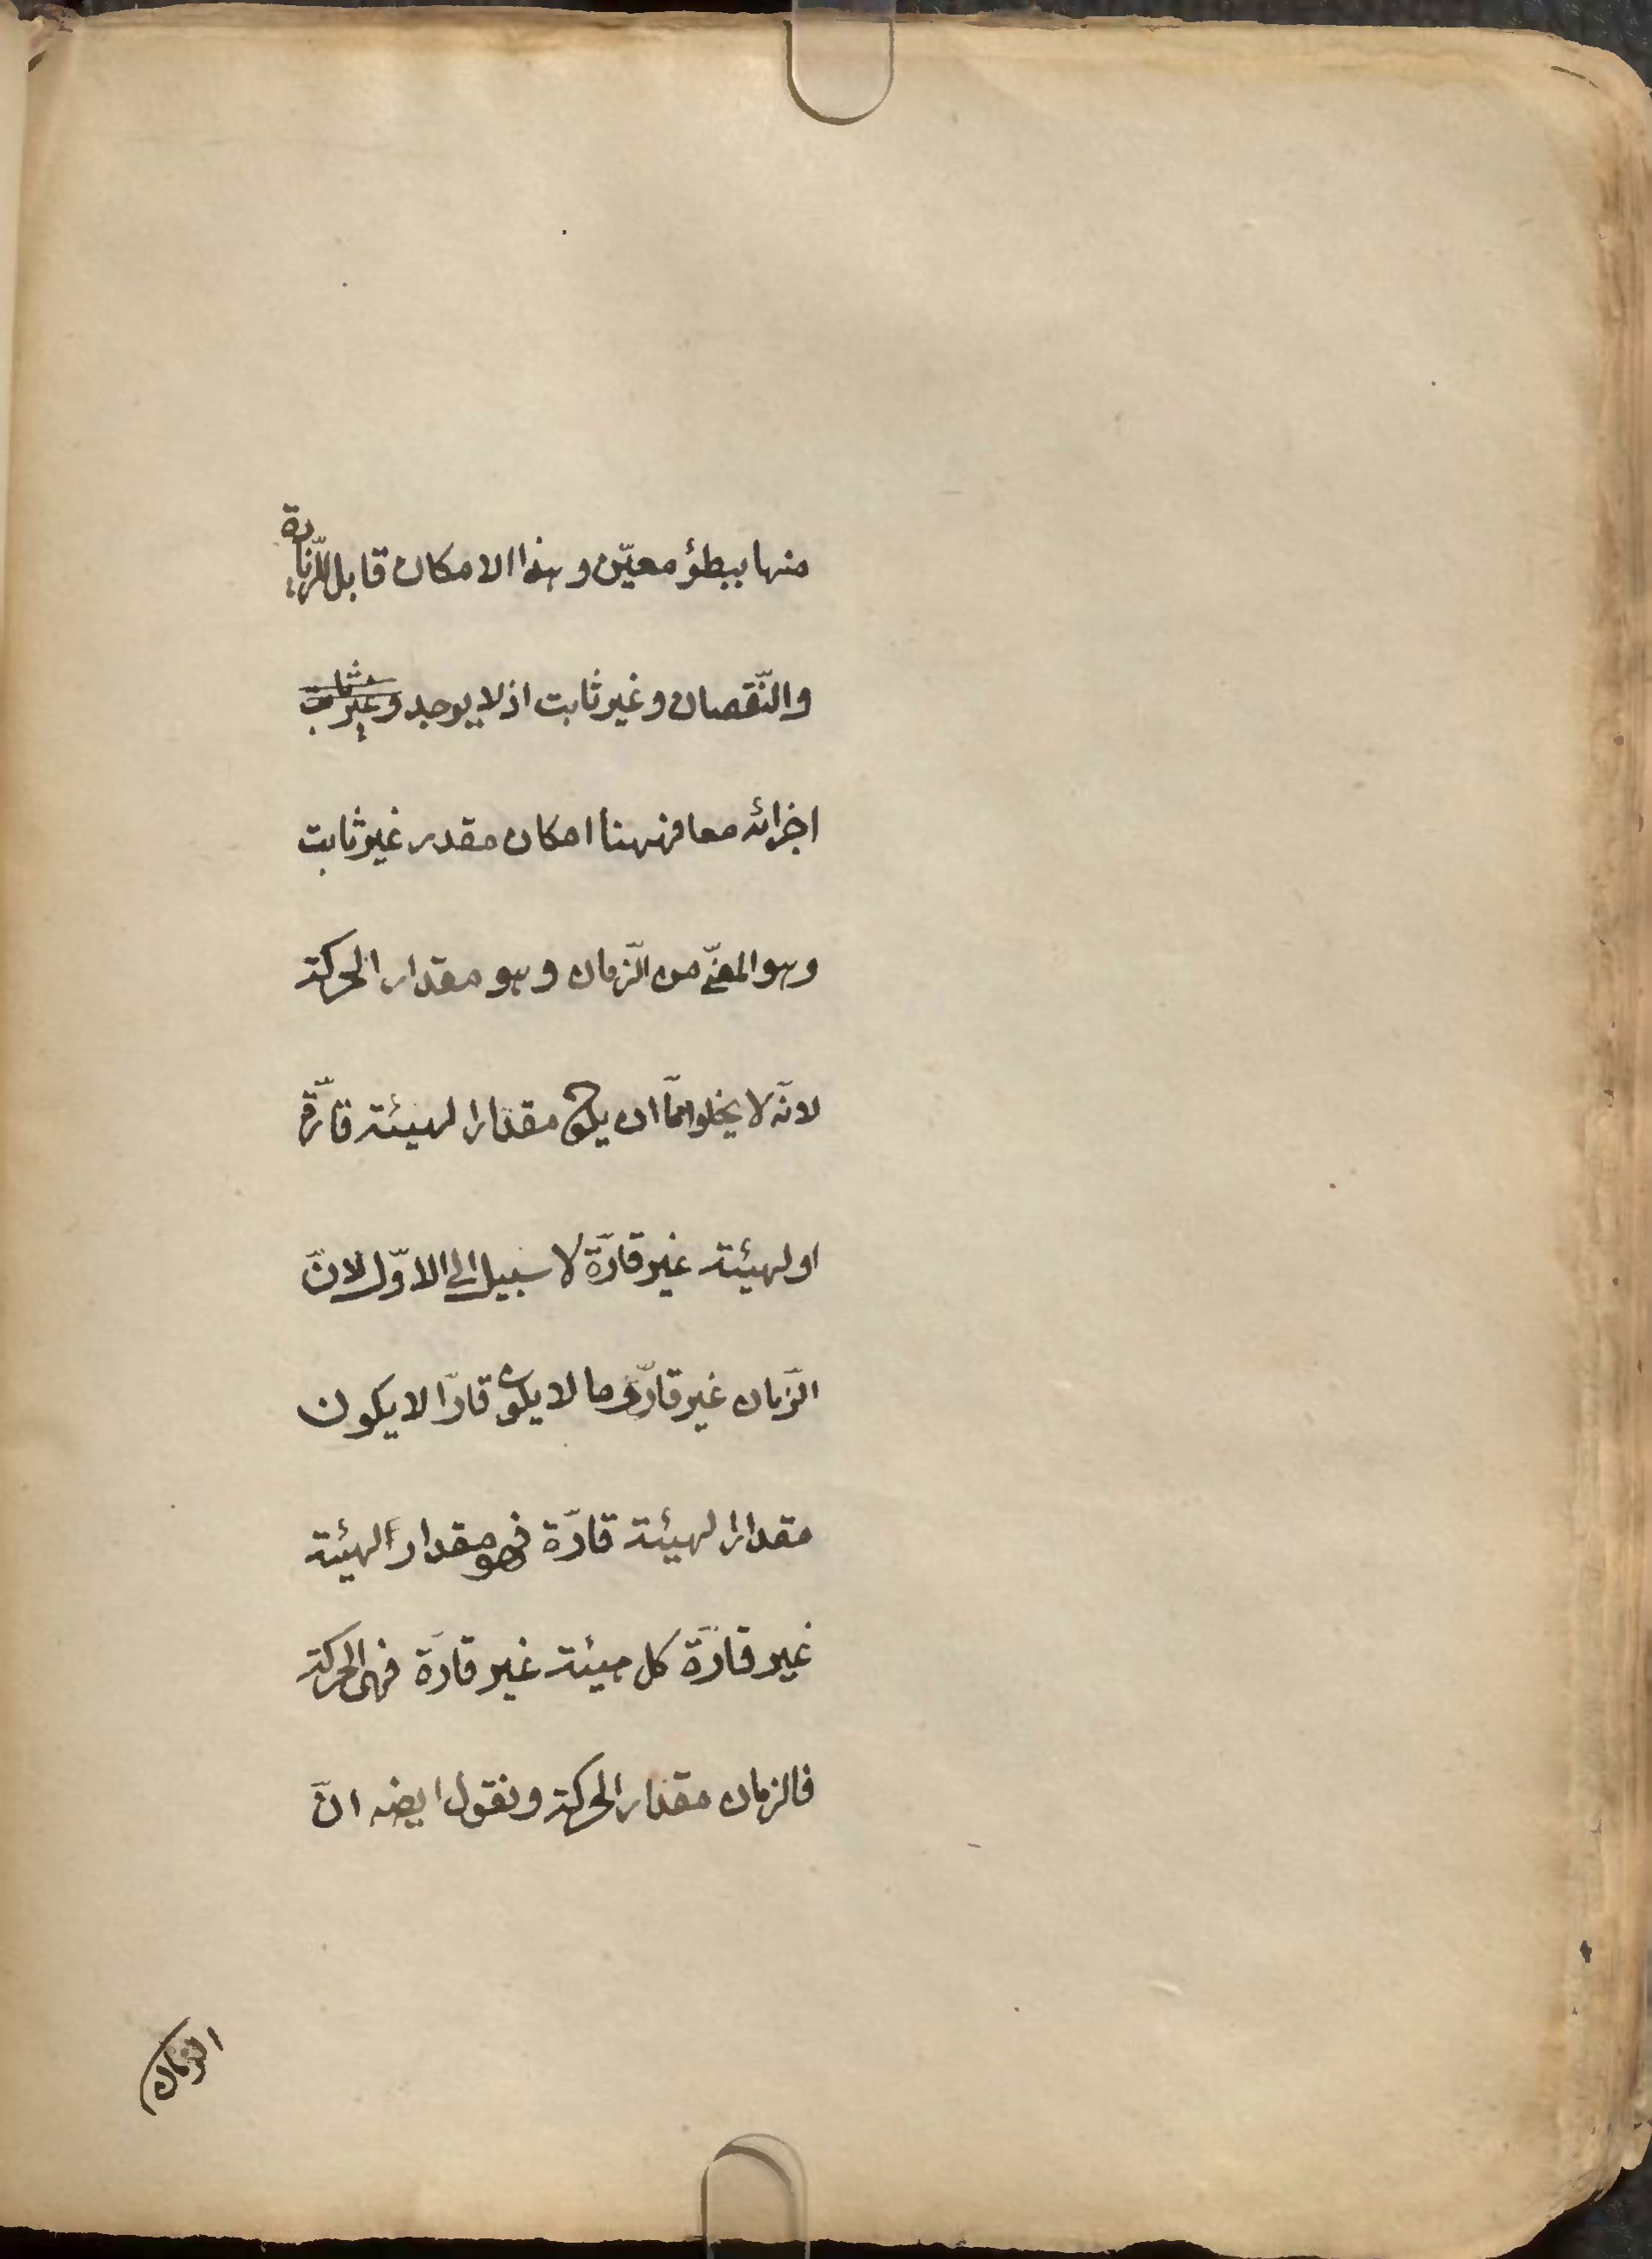 منها ببطؤ معيّن وهذا الامكان قابل للزّيادة
والنّقصان وغير ثابت اذ لا يوجد وغير ثابت
اجزائه معا فههنا امكان مقدر غير ثابت
وهو المعنىّ من الزّمان وهو مقدار الحركة
لانّه لا يخلو امّا ان يكون مقدارا لهيئة قارّة
او لهيئة غير قارّة لا سبيل الى الاوّل لانّ
الزّمان غير قارّ وما لا يكون قارّا لا يكون
مقدارا لهيئة قارّة فهو مقدار الهيئة
غير قارّة كل هيئة غير قارّة فهى الحركة
فالزمان مقدار الحركة ونقول ايضه انّ
الزمان